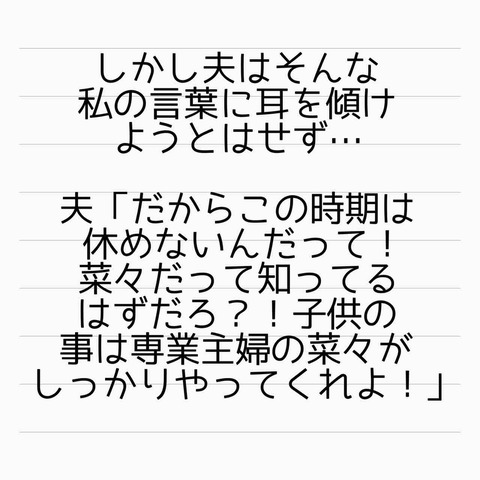 しかし夫はそんな
私の言葉に耳を傾け
ようとはせず…
夫「だからこの時期は
休めないんだって！
菜々だって知ってる
はずだろ？！子供の
事は専業主婦の菜々が
しっかりやってくれよ！」